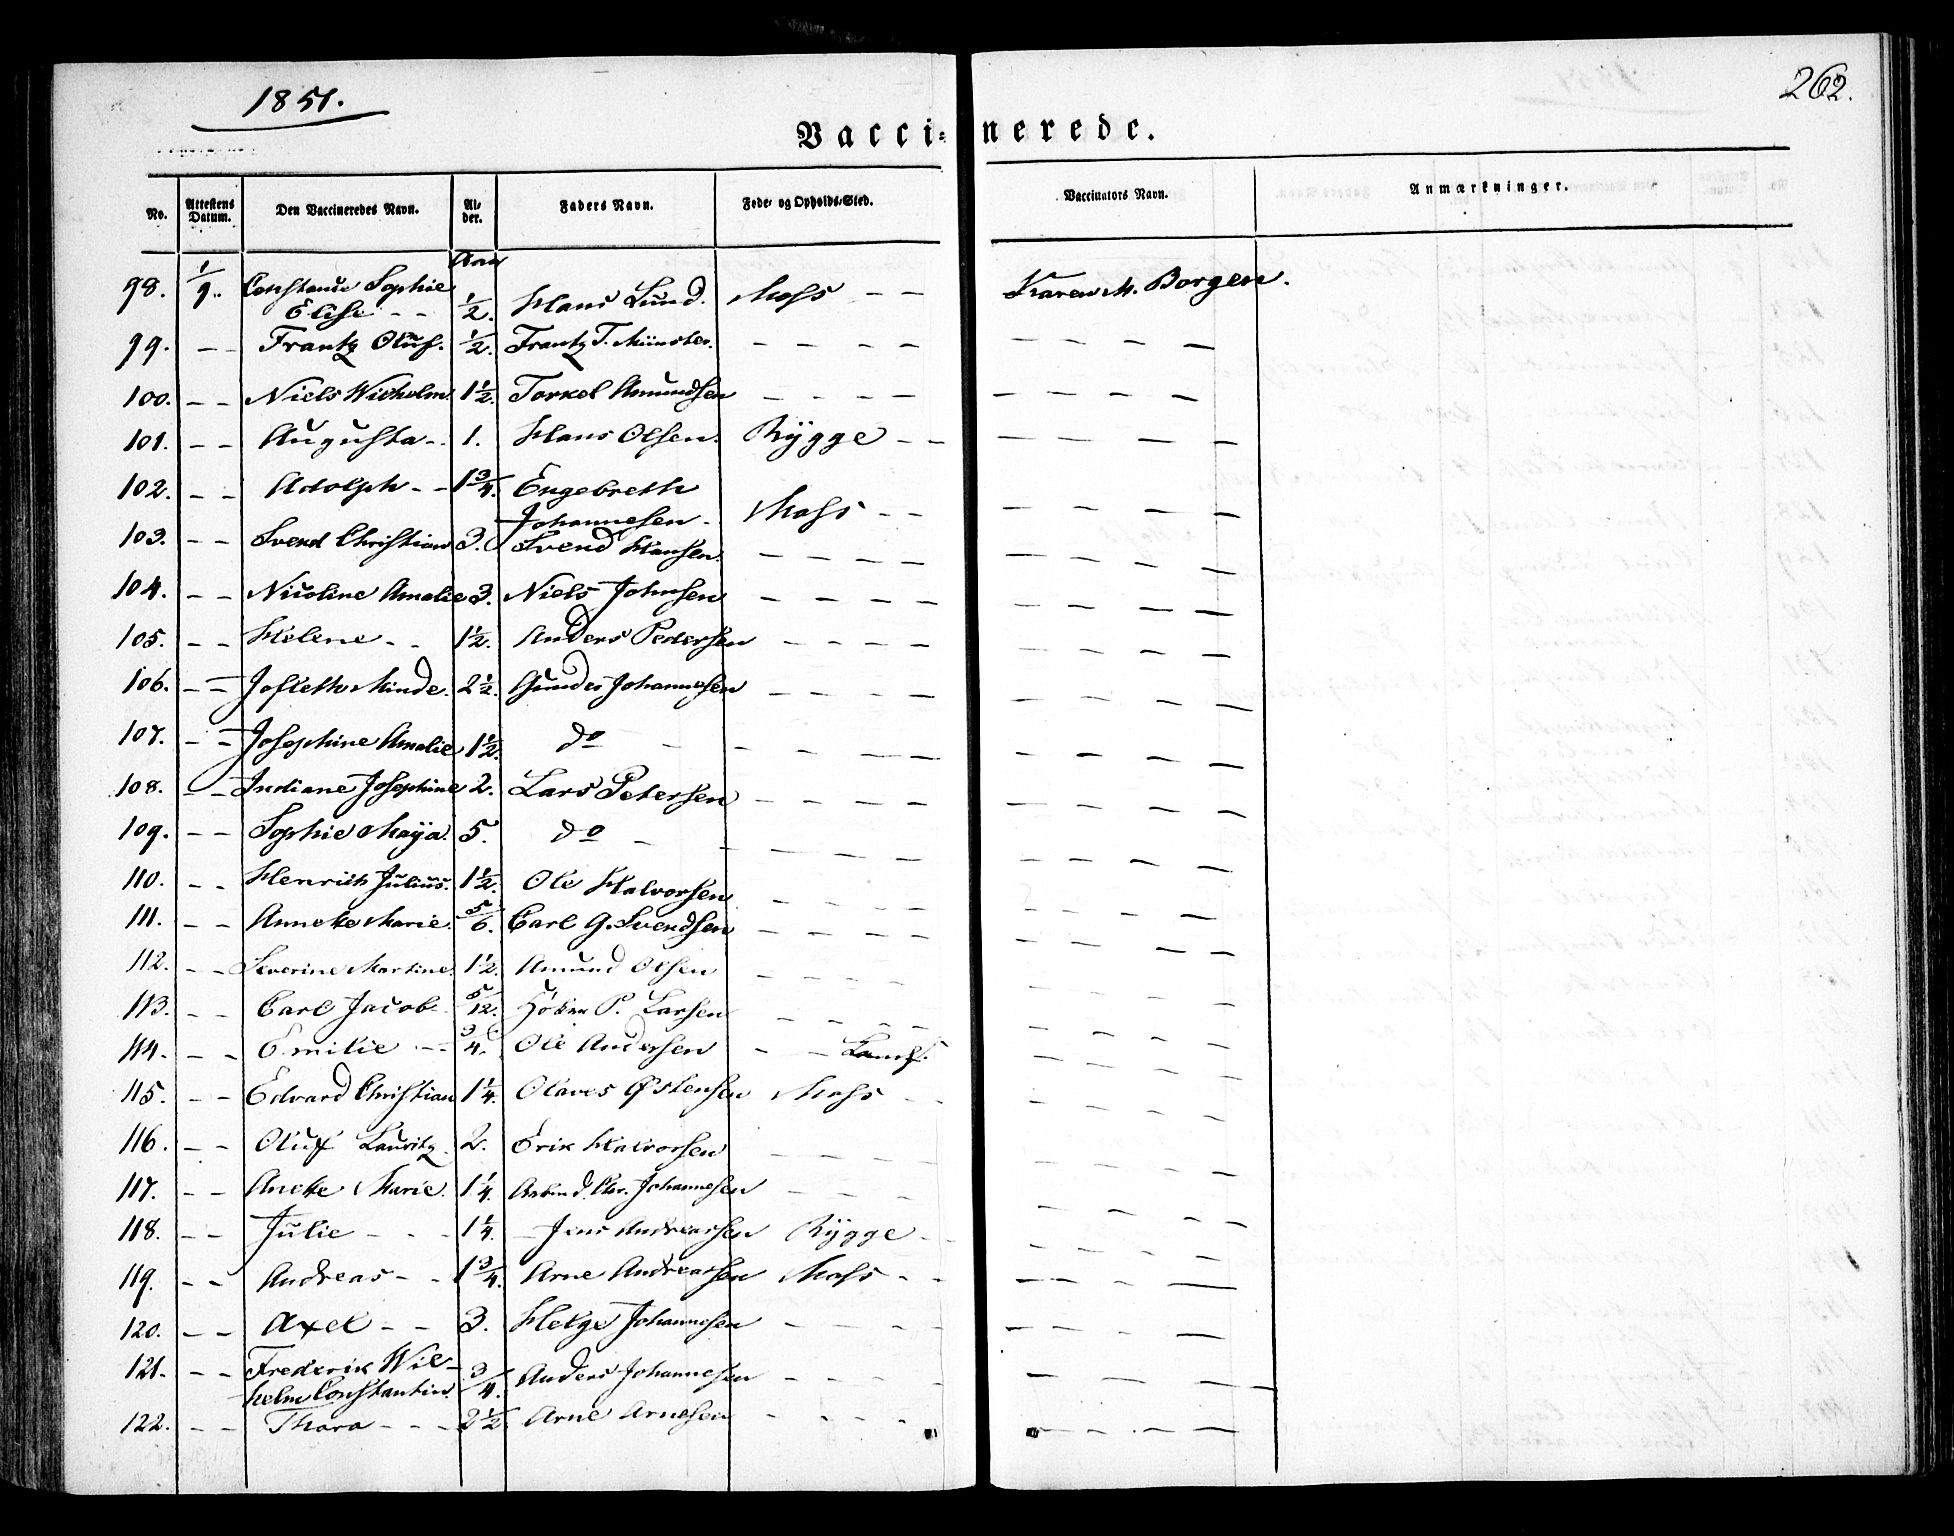 1851.
262.
Vacci=nerede.
No. Attestens Datum. Den Vaccineredes Navn. Al-der. Faders Navn. Føde- og Opholds-Sted. Vaccinators Navn. Anmærkninger.
Aar
98. 1/9. Constance Sophie
Elise - - 1/2. Hans Lund. Moss - - Karen M. Borgen.
99. - - Frantz Oluf. 1/2. Frantz T. Münster. - - - - - - - -
100. - - Niels Wilhelm 1 1/2. Torkel Amundsen - - - - - - - -
101. - - Augusta - 1. Hans Olsen. Rÿgge - - - - - -
102. - - Adolph - - 1 3/4. Engebreth
Johannesen - Moss - - - - - -
103. - - Svend Christian 3. Svend Hansen. - - - - - - - -
104. - - Nicoline Amalie 3. Niels Johnsen - - - - - - - -
105. - - Helene - - 1 1/2. Anders Pedersen - - - - - - - -
106. - - Josleth Minde. 2 1/2. Gunder Johannesen - - - - - - - -
107. - - Josephine Amalie 1 1/2. do - - - - - - - - -
108. - - Indiane Josephine 2. Lars Petersen - - - - - - - -
109. - - Sophie Maÿa. 5. do - - - - - - - - -
110. - - Henrich Julius. 1 1/2. Ole Halvorsen - - - - - - - -
111. - - Annette Marie. 5/6. Carl G. Svendsen - - - - - - - -
112. - - Severine Martine. 1 1/2. Amund Olsen - - - - - - - -
113. - - Carl Jacob 5/12. P. Larsen - - - - - - - -
114. - - Emilie - - 3/4. Ole Andersen - - - - - -
115. - - Edvard Christian 1 1/4. Olaves Østensen Moss - - - - - -
116. - - Oluf Lauritz. 2. Erik Halvorsen - - - - - - - -
117. - - Anette Marie. 1 1/4. Chr. Johannesen - - - - - - - -
118. - - Julie - - - 1 1/4. Jens Andreassen Rÿgge - - - - - -
119. - - Andreas - - 1 3/4. Arne Andreassen Moss - - - - - -
120. - - Axel - - 3. Helge Johannesen - - - - - - - -
121. - - Frederik Wil-
helm Constantin. 3/4. Anders Johannesen - - - - - - - -
122. - - Thora - - - 2 1/2. Arne Arnesen - - - - - - - -